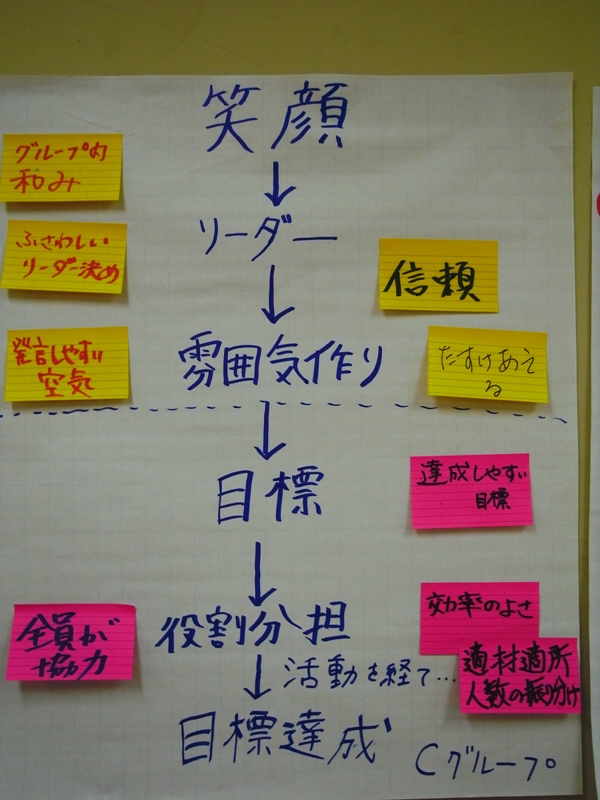 笑顔
グループ内
和み
リーダー
ふさわしい
リーダー決め
信頼
雰囲気作り
発言しやすい
空気
たすけあえ
る
目標
達成しやすい
目標
役割分担
全員が
協力
効率のよさ
適材適所
人数の振り分け
活動を経て…
目標達成
Cグループ